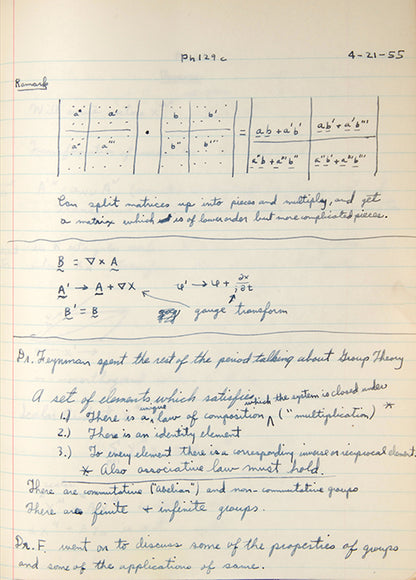 Ph129c 4-21-55
Remark
a a' b b' ab + a'b" ab' + a'b'''
a" a''' b" b''' a"b + a'''b" a"b' + a'''b'''
Can split matrices up into pieces and multiply, and get
a matrix which is of lower order but more complicated pieces.
B = ∇ × A
A' → A + ∇X φ' → φ + ∂x/∂t
B' = B gauge transform
Dr. Feynman spent the rest of the period talking about Group Theory
A set of elements which satisfies
1.) There is a unique law of composition which the system is closed under ("multiplication") *
2.) There is an identity element
3.) To every element there is a corresponding inverse or reciprocal element.
* Also associative law must hold.
There are commutative ("abelian") and non-commutative groups
There are finite + infinite groups.
Dr. F. went on to discuss some of the properties of groups
and some of the applications of same.